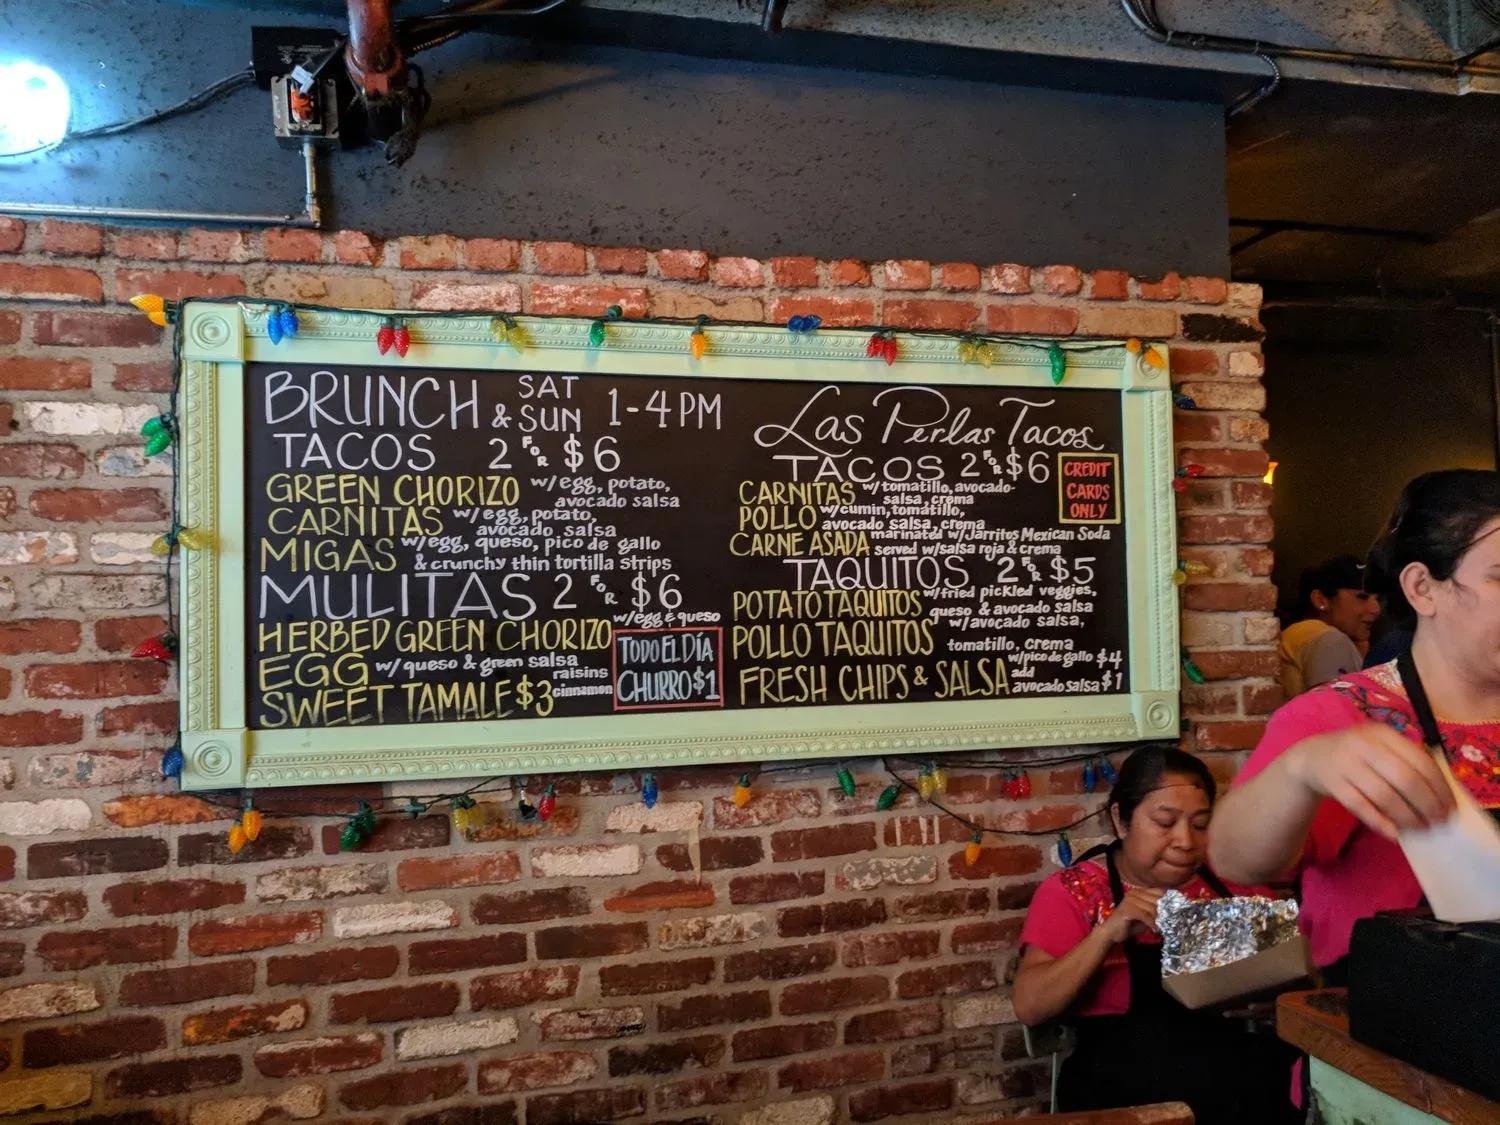 BRUNCH SAT & SUN 1-4 PM
TACOS 2 FOR $6
GREEN CHORIZO w/egg, potato,
avocado salsa
CARNITAS w/egg, potato,
avocado salsa
MIGAS w/egg, queso, pico de gallo
& crunchy thin tortilla strips
MULITAS 2 FOR $6
w/egg & queso
HERBED GREEN CHORIZO
EGG w/ queso & green salsa
SWEET TAMALE $3 raisins
cinnamon
TODO EL DÍA
CHURRO $1
Las Perlas Tacos
TACOS 2 FOR $6
CREDIT
CARDS
ONLY
CARNITAS w/tomatillo, avocado-
salsa, crema
POLLO w/cumin, tomatillo,
avocado salsa, crema
CARNE ASADA marinated w/Jarritos Mexican Soda
served w/salsa roja & crema
TAQUITOS 2 FOR $5
POTATO TAQUITOS w/fried pickled veggies,
queso & avocado salsa
POLLO TAQUITOS w/avocado salsa,
tomatillo, crema
FRESH CHIPS & SALSA w/pico de gallo $4
add
avocado salsa $1